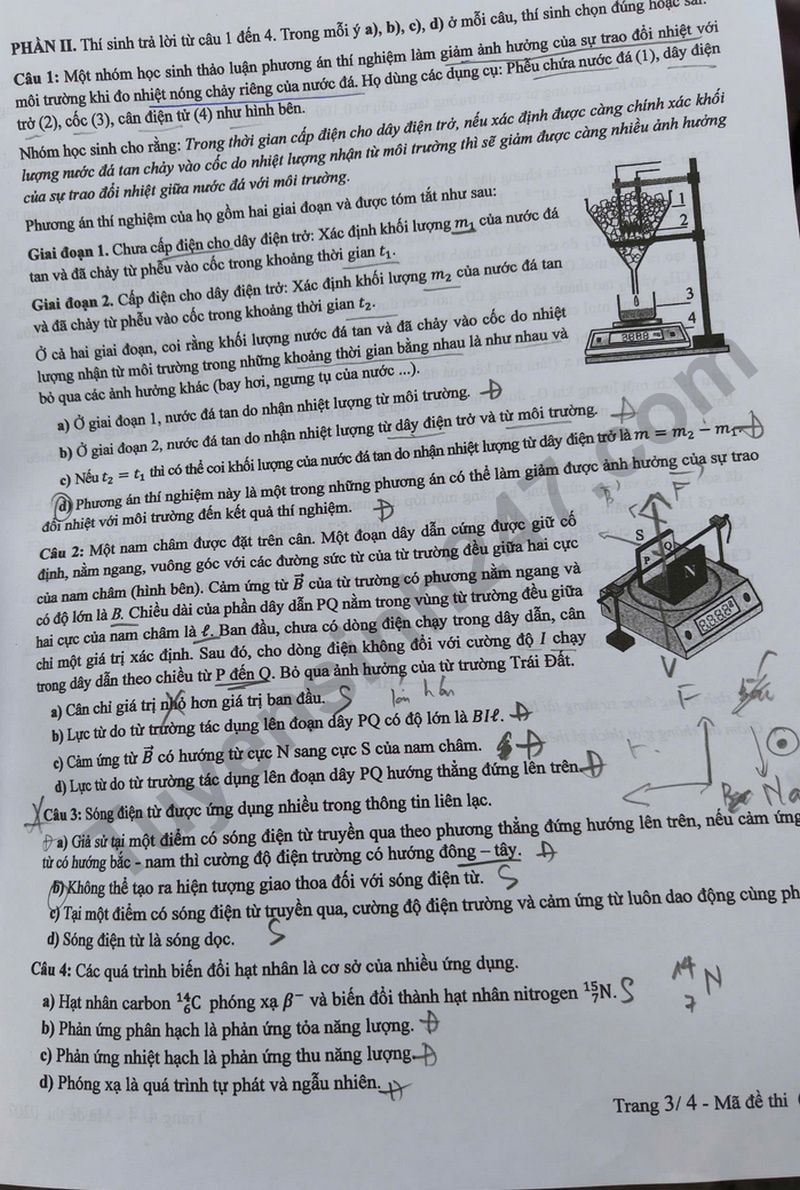 PHẦN II. Thí sinh trả lời từ câu 1 đến 4. Trong mỗi ý a), b), c), d) ở mỗi câu, thí sinh chọn đúng hoặc sai.
Câu 1: Một nhóm học sinh thảo luận phương án thí nghiệm làm giảm ảnh hưởng của sự trao đổi nhiệt với
môi trường khi đo nhiệt nóng chảy riêng của nước đá. Họ dùng các dụng cụ: Phễu chứa nước đá (1), dây điện
trở (2), cốc (3), cân điện tử (4) như hình bên.
Nhóm học sinh cho rằng: Trong thời gian cấp điện cho dây điện trở, nếu xác định được càng chính xác khối
lượng nước đá tan chảy vào cốc do nhiệt lượng nhận từ môi trường thì sẽ giảm được càng nhiều ảnh hưởng
của sự trao đổi nhiệt giữa nước đá với môi trường.
Phương án thí nghiệm của họ gồm hai giai đoạn và được tóm tắt như sau:
Giai đoạn 1. Chưa cấp điện cho dây điện trở: Xác định khối lượng m₁ của nước đá
tan và đã chảy từ phễu vào cốc trong khoảng thời gian t₁.
Giai đoạn 2. Cấp điện cho dây điện trở: Xác định khối lượng m₂ của nước đá tan
và đã chảy từ phễu vào cốc trong khoảng thời gian t₂.
1
2
3
4
Ở cả hai giai đoạn, coi rằng khối lượng nước đá tan và đã chảy vào cốc do nhiệt
lượng nhận từ môi trường trong những khoảng thời gian bằng nhau là như nhau và
bỏ qua các ảnh hưởng khác (bay hơi, ngưng tụ của nước ...).
a) Ở giai đoạn 1, nước đá tan do nhận nhiệt lượng từ môi trường. Đ
b) Ở giai đoạn 2, nước đá tan do nhận nhiệt lượng từ dây điện trở và từ môi trường. Đ
c) Nếu t₂ = t₁ thì có thể coi khối lượng của nước đá tan do nhận nhiệt lượng từ dây điện trở là m = m₂ − m₁. Đ
d) Phương án thí nghiệm này là một trong những phương án có thể làm giảm được ảnh hưởng của sự trao
đổi nhiệt với môi trường đến kết quả thí nghiệm. Đ
Câu 2: Một nam châm được đặt trên cân. Một đoạn dây dẫn cứng được giữ cố
định, nằm ngang, vuông góc với các đường sức từ của từ trường đều giữa hai cực
của nam châm (hình bên). Cảm ứng từ B⃗ của từ trường có phương nằm ngang và
có độ lớn là B. Chiều dài của phần dây dẫn PQ nằm trong vùng từ trường đều giữa
hai cực của nam châm là ℓ. Ban đầu, chưa có dòng điện chạy trong dây dẫn, cân
chỉ một giá trị xác định. Sau đó, cho dòng điện không đổi với cường độ I chạy
trong dây dẫn theo chiều từ P đến Q. Bỏ qua ảnh hưởng của từ trường Trái Đất.
F
S
P
Q
N
a) Cân chỉ giá trị nhỏ hơn giá trị ban đầu. S lớn hơn
b) Lực từ do từ trường tác dụng lên đoạn dây PQ có độ lớn là BIℓ. Đ
c) Cảm ứng từ B⃗ có hướng từ cực N sang cực S của nam châm. Đ
d) Lực từ do từ trường tác dụng lên đoạn dây PQ hướng thẳng đứng lên trên. Đ
Câu 3: Sóng điện từ được ứng dụng nhiều trong thông tin liên lạc.
a) Giả sử tại một điểm có sóng điện từ truyền qua theo phương thẳng đứng hướng lên trên, nếu cảm ứng
từ có hướng bắc - nam thì cường độ điện trường có hướng đông – tây. Đ
b) Không thể tạo ra hiện tượng giao thoa đối với sóng điện từ. S
c) Tại một điểm có sóng điện từ truyền qua, cường độ điện trường và cảm ứng từ luôn dao động cùng ph
d) Sóng điện từ là sóng dọc. S
Câu 4: Các quá trình biến đổi hạt nhân là cơ sở của nhiều ứng dụng.
a) Hạt nhân carbon ¹⁴₆C phóng xạ β⁻ và biến đổi thành hạt nhân nitrogen ¹⁵₇N. S ¹⁴₇N
b) Phản ứng phân hạch là phản ứng tỏa năng lượng. Đ
c) Phản ứng nhiệt hạch là phản ứng thu năng lượng. Đ
d) Phóng xạ là quá trình tự phát và ngẫu nhiên. Đ
Trang 3/ 4 - Mã đề thi
Tuyensinh247.com